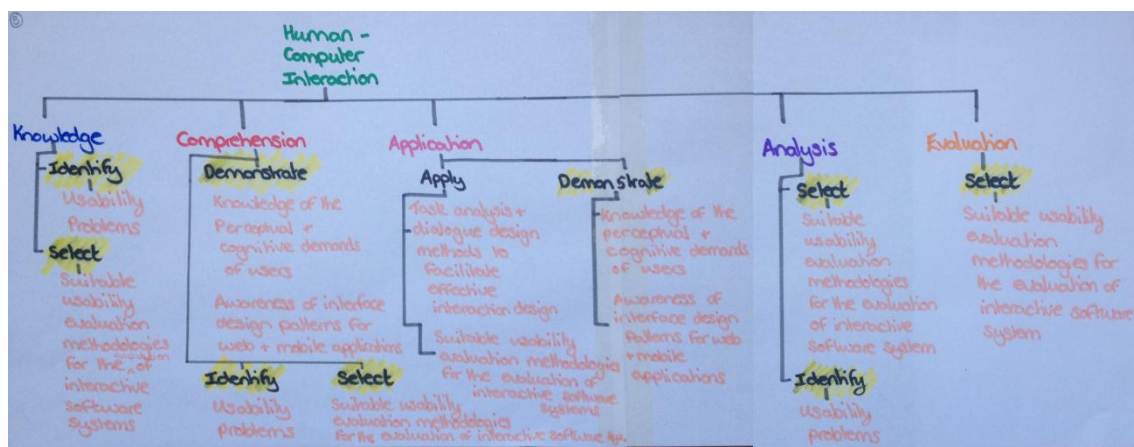 5
Human -
Computer
Interaction
Knowledge
Identify
Usability
Problems
Select
Suitable
usability
evaluation
methodologies
for the evaluation of
interactive
software
systems
Comprehension
Demonstrate
Knowledge of the
Perceptual +
cognitive demands
of users
Awareness of interface
design patterns for
web + mobile applications
Identify
Usability
problems
Select
Suitable usability
evaluation methodologies
for the evaluation of interactive software
Application
Apply
Task analysis +
dialogue design
methods to
facilitate
effective
interaction design
Suitable usability
evaluation methodologies
for the evaluation of
interactive software
systems
Demonstrate
Knowledge of the
perceptual +
cognitive demands
of users
Awareness of
interface design
patterns for web
+ mobile
applications
Analysis
Select
Suitable
usability
evaluation
methodologies
for the evaluation
of interactive
software system
Identify
Usability
problems
Evaluation
Select
Suitable usability
evaluation
methodologies for
the evaluation of
interactive software
system